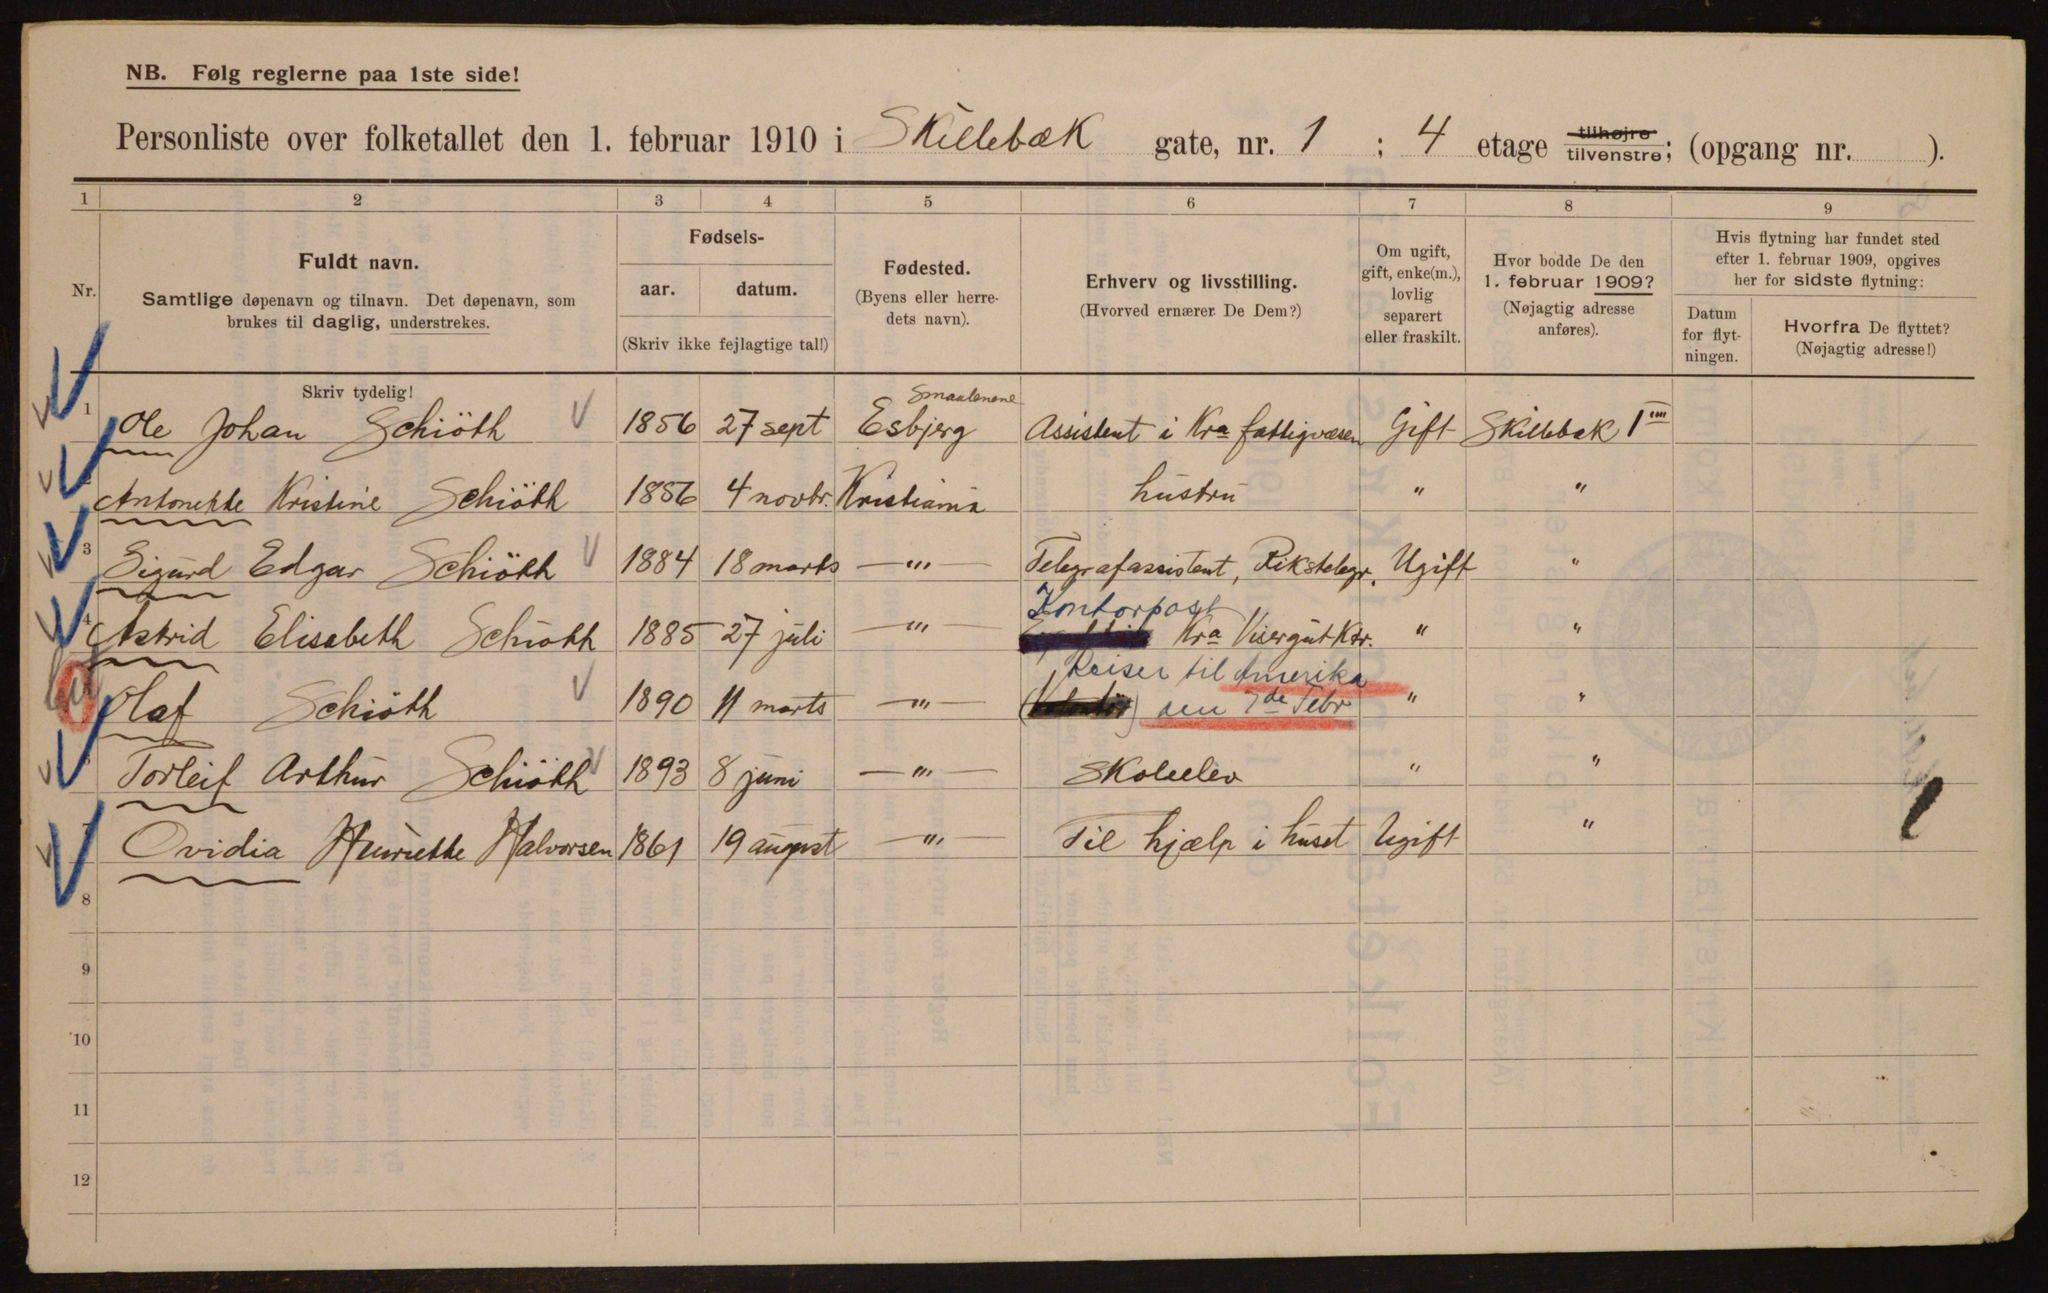 NB. Følg reglerne paa 1ste side!
Personliste over folketallet den 1. februar 1910 i Skillebæk gate, nr. 1 ; 4 etage tilhøjre tilvenstre; (opgang nr. ).
1 2 3 4 5 6 7 8 9
Nr.
Fuldt navn.
Samtlige døpenavn og tilnavn. Det døpenavn, som
brukes til daglig, understrekes.
Skriv tydelig!
Fødsels-
aar. datum.
(Skriv ikke fejlagtige tal!)
Fødested.
(Byens eller herre-
dets navn).
Erhverv og livsstilling.
(Hvorved ernærer De Dem?)
Om ugift,
gift, enke(m.),
lovlig
separert
eller fraskilt.
Hvor bodde De den
1. februar 1909?
(Nøjagtig adresse
anføres).
Hvis flytning har fundet sted
efter 1. februar 1909, opgives
her for sidste flytning:
Datum
for flyt-
ningen.
Hvorfra De flyttet?
(Nøjagtig adresse!)
Smaalenene
1 Ole Johan Schiöth 1856 27 sept Esbjerg Assistent i Kra fattigvæsen Gift Skillebæk 1
Antonette Kristine Schiöth 1856 4 novbr. Kristiania hustru " "
3 Sigurd Edgar Schiöth 1884 18 marts — " — Telegrafassistent, Rikstelegr. Ugift "
Kontorpost
4 Astrid Elisabeth Schiöth 1885 27 juli — " — Kra Visergut Ktr. " "
Reiser til Amerika
Olaf Schiöth 1890 11 marts — " — (Volontör) den 7de Febr " "
Torleif Arthur Schiöth 1893 8 juni — " — Skoleelev " "
7 Ovidia Henriette Halvorsen 1861 19 august — " — Til hjælp i huset Ugift "
8
9
10
11
12